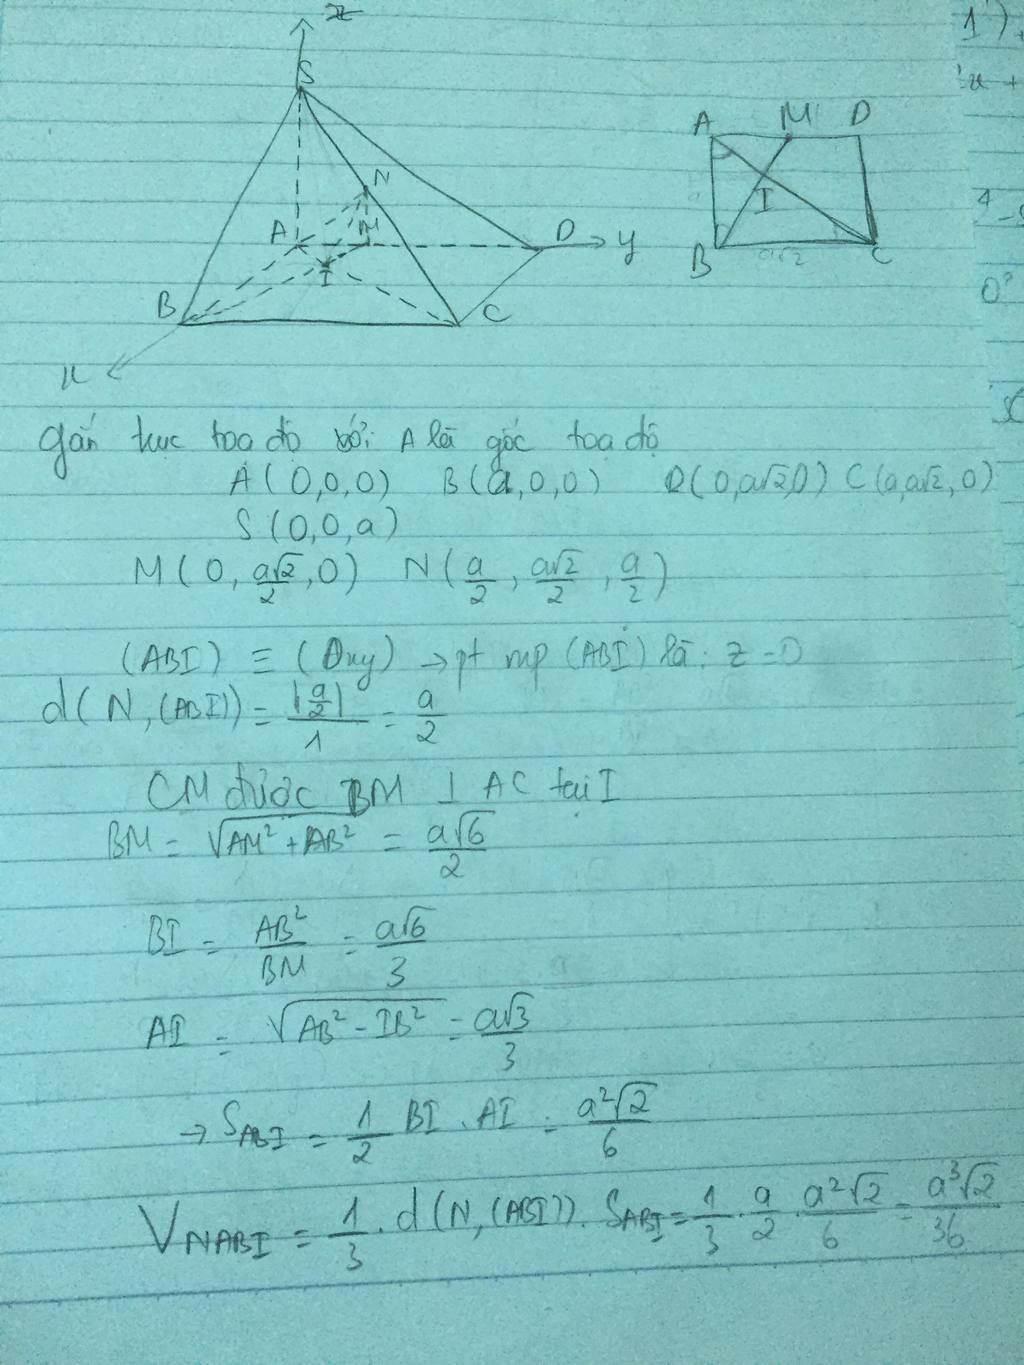 z
S
N
A
M
D
y
I
B
C
x
A
M
D
I
B
a√2
C
1)
Gắn trục toạ độ với A là gốc toạ độ
A(0,0,0) B(a,0,0) D(0,a√2,0) C(a,a√2,0)
S(0,0,a)
M(0, a√2/2, 0) N(a/2, a√2/2, a/2)
(ABI) ≡ (Oxy) → pt mp (ABI) là: z = 0
d(N,(ABI)) = |a/2|/1 = a/2
CM được BM ⊥ AC tại I
BM = √(AM² + AB²) = a√6/2
BI = AB²/BM = a√6/3
AI = √(AB² - IB²) = a√3/3
→ S_ABI = 1/2 BI . AI = a²√2/6
V_NABI = 1/3 . d(N,(ABI)) . S_ABI = 1/3 . a/2 . a²√2/6 = a³√2/36